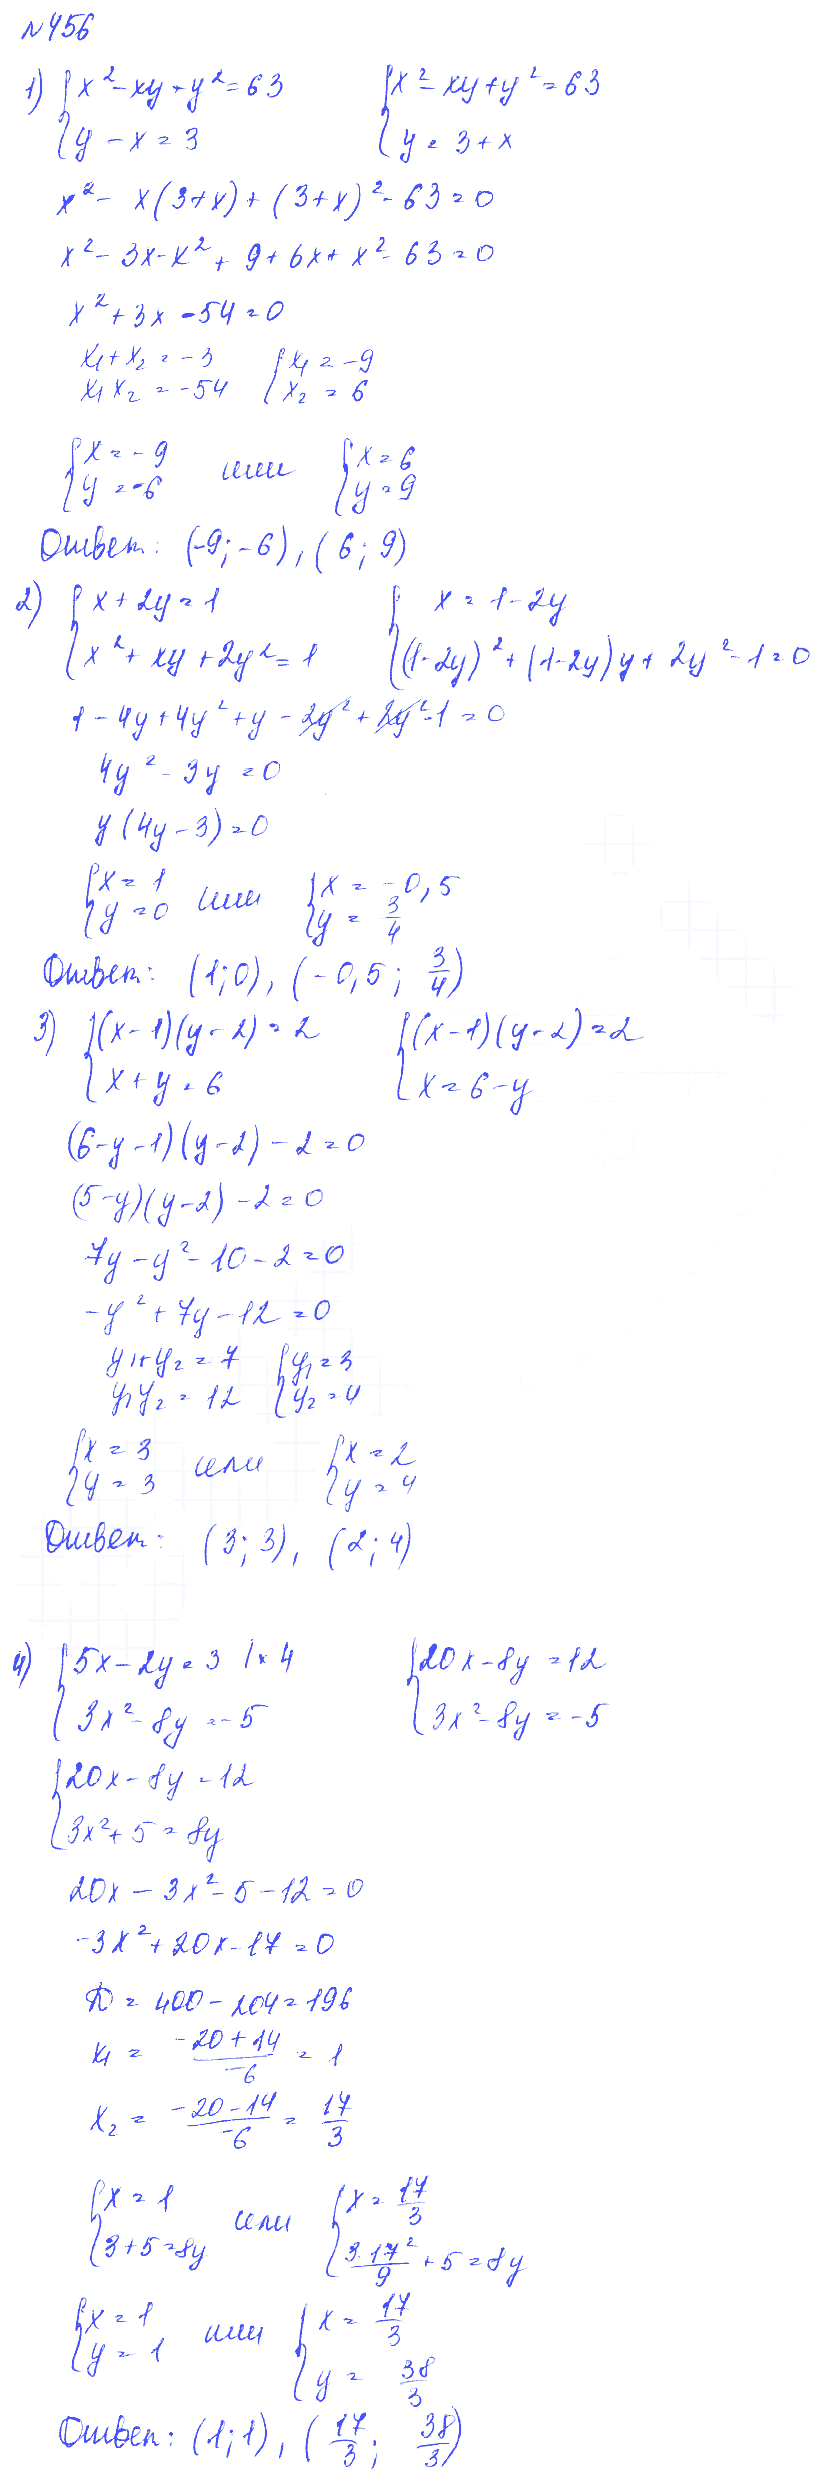 №456
1) { x² - xy + y² = 63   { x² - xy + y² = 63
{ y - x = 3   { y = 3 + x
x² - x(3+x) + (3+x)² - 63 = 0
x² - 3x - x² + 9 + 6x + x² - 63 = 0
x² + 3x - 54 = 0
x₁ + x₂ = -3   { x₁ = -9
x₁x₂ = -54   { x₂ = 6
{ x = -9   или   { x = 6
{ y = -6   { y = 9
Ответ: (-9; -6), (6; 9)
2) { x + 2y = 1   { x = 1 - 2y
{ x² + xy + 2y² = 1   { (1-2y)² + (1-2y)y + 2y² - 1 = 0
1 - 4y + 4y² + y - 2y² + 2y² - 1 = 0
4y² - 3y = 0
y(4y - 3) = 0
{ x = 1   или   { x = -0,5
{ y = 0   { y = 3/4
Ответ: (1; 0), (-0,5; 3/4)
3) { (x-1)(y-2) = 2   { (x-1)(y-2) = 2
{ x + y = 6   { x = 6 - y
(6-y-1)(y-2) - 2 = 0
(5-y)(y-2) - 2 = 0
7y - y² - 10 - 2 = 0
-y² + 7y - 12 = 0
y₁ + y₂ = 7   { y₁ = 3
y₁y₂ = 12   { y₂ = 4
{ x = 3   или   { x = 2
{ y = 3   { y = 4
Ответ: (3; 3), (2; 4)
4) { 5x - 2y = 3 |× 4   { 20x - 8y = 12
{ 3x² - 8y = -5   { 3x² - 8y = -5
{ 20x - 8y = 12
{ 3x² + 5 = 8y
20x - 3x² - 5 - 12 = 0
-3x² + 20x - 17 = 0
D = 400 - 204 = 196
x₁ = (-20+14)/(-6) = 1
x₂ = (-20-14)/(-6) = 17/3
{ x = 1   или   { x = 17/3
{ 3 + 5 = 8y   { 3·17²/9 + 5 = 8y
{ x = 1   или   { x = 17/3
{ y = 1   { y = 38/3
Ответ: (1; 1), (17/3; 38/3)